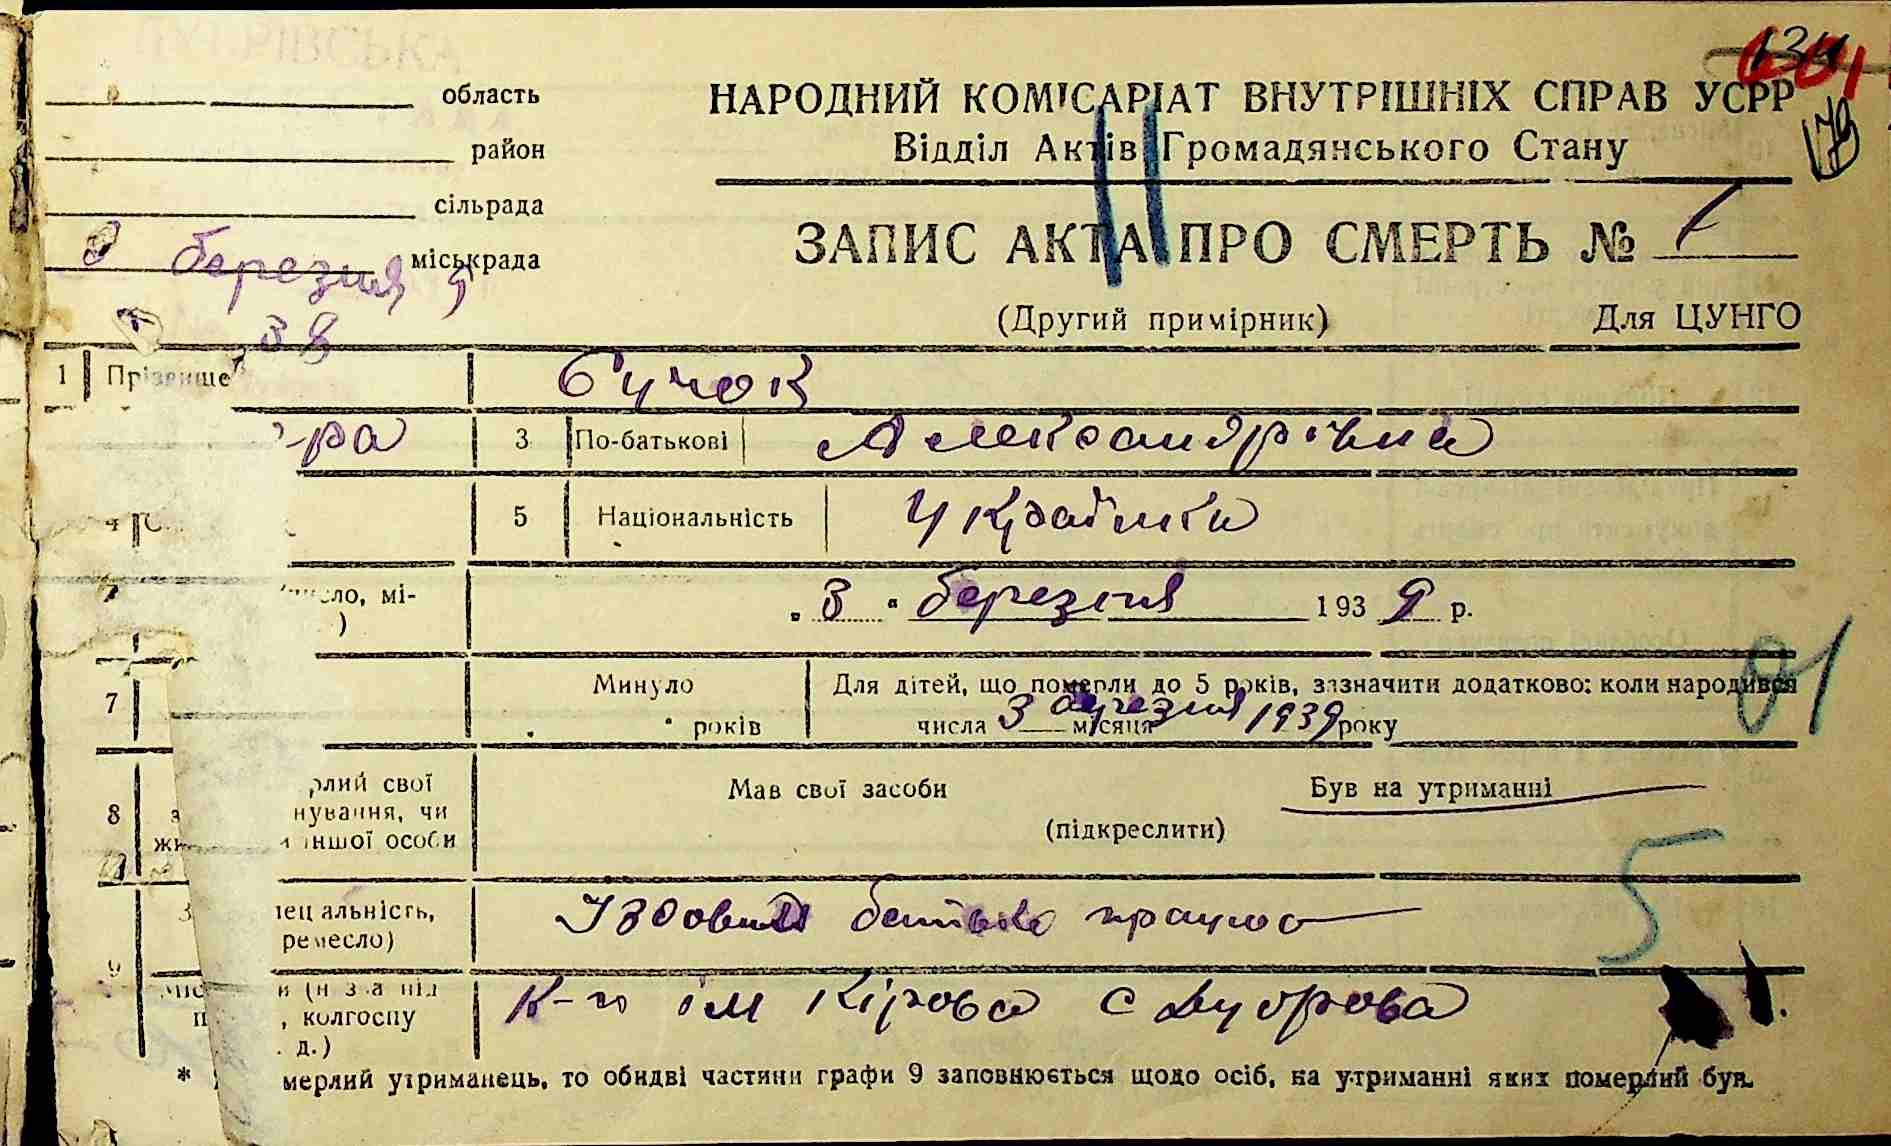 область
район
сільрада
березня міськрада
38
НАРОДНИЙ КОМІСАРІАТ ВНУТРІШНІХ СПРАВ УСРР
Відділ Актів Громадянського Стану
179
ЗАПИС АКТА ПРО СМЕРТЬ № 1
(Другий примірник) Для ЦУНГО
1 Прізвище Бучок
ра 3 По-батькові Александрівна
4 5 Національність Українка
число, мі-
) „3" березня 1939 р.
7 Минуло Для дітей, що померли до 5 років, зазначити додатково: коли народився
років числа 3 місяця березня 1939 року
рлий свої Мав свої засоби Був на утриманні
8 нування, чи
іншої особи (підкреслити)
альність,
ремесло) Їздовий батько працює
9
, колгоспу К-п ім Кірова с Дуброва
д.)
* мерлий утриманець, то обидві частини графи 9 заповнюється щодо осіб, на утриманні яких померлий був.
01
5